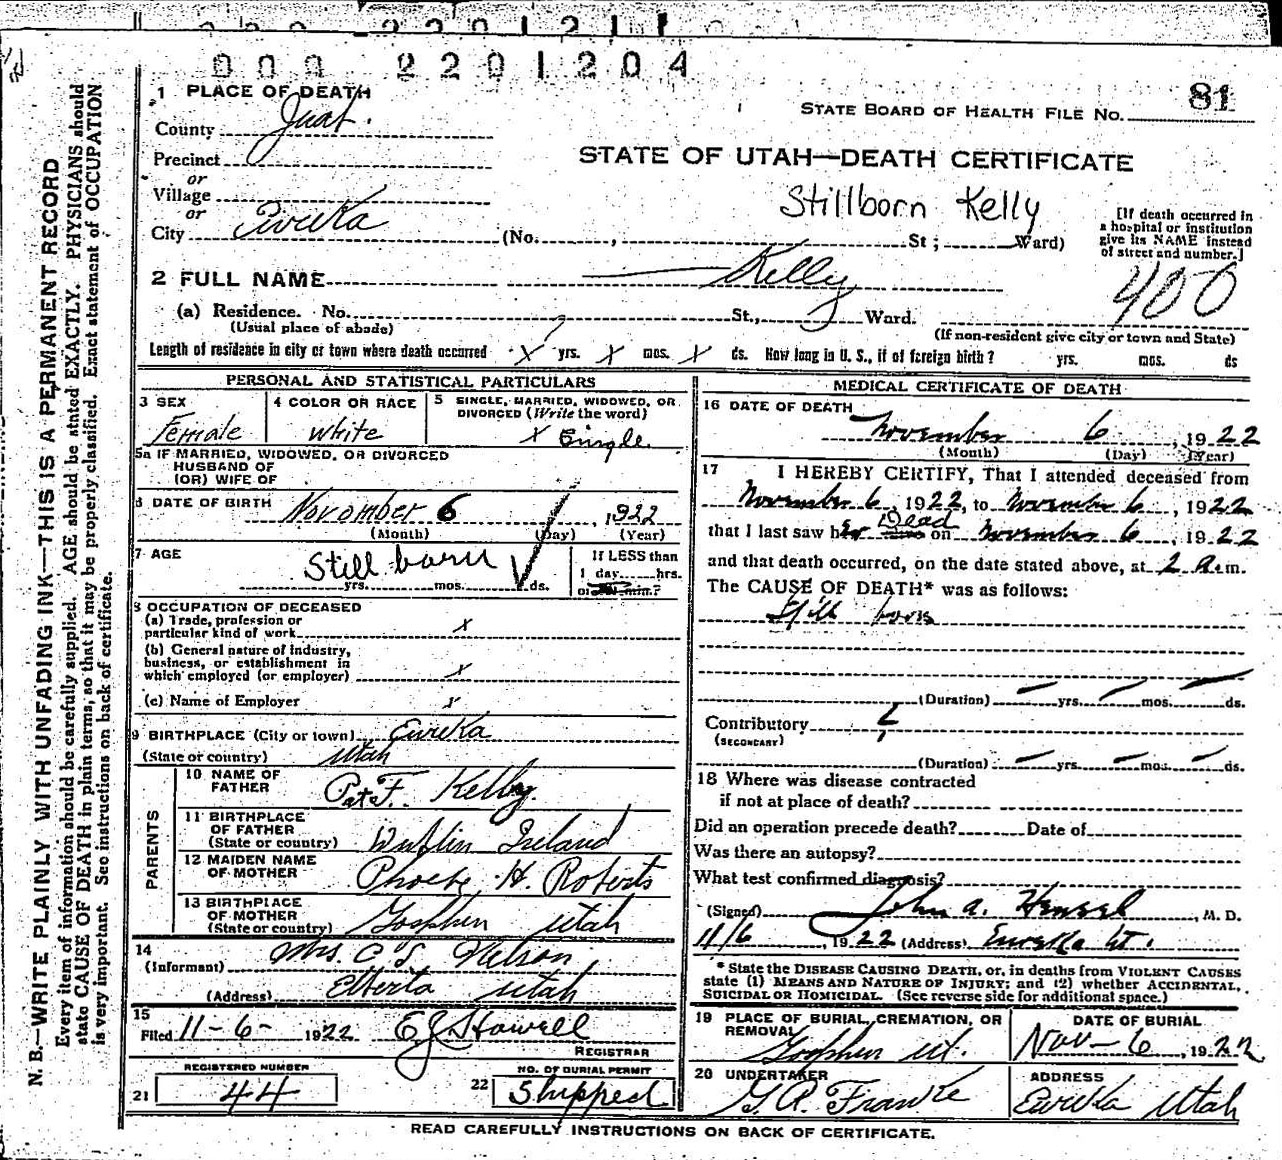 000 2201204
81
1 PLACE OF DEATH
STATE BOARD OF HEALTH FILE No.
County Juab.
Precinct
STATE OF UTAH—DEATH CERTIFICATE
or
Village
Stillborn Kelly
or
City Eureka (No. , St; Ward)
[If death occurred in
a hospital or institution
give its NAME instead
of street and number.]
2 FULL NAME Kelly
400
(a) Residence. No. St., Ward.
(Usual place of abode)
(If non-resident give city or town and State)
Length of residence in city or town where death occurred X yrs. X mos. X ds. How long in U. S., if of foreign birth? yrs. mos. ds
PERSONAL AND STATISTICAL PARTICULARS
3 SEX
Female
4 COLOR OR RACE
White
5 SINGLE, MARRIED, WIDOWED, OR
DIVORCED (Write the word)
X Single
5a IF MARRIED, WIDOWED, OR DIVORCED
HUSBAND OF
(OR) WIFE OF
6 DATE OF BIRTH November 6, 1922
(Month) (Day) (Year)
7 AGE Still born
yrs. mos. ds.
If LESS than
1 day hrs.
or min.?
8 OCCUPATION OF DECEASED
(a) Trade, profession or
particular kind of work X
(b) General nature of industry,
business, or establishment in
which employed (or employer) X
(c) Name of Employer x
9 BIRTHPLACE (City or town) Eureka
(State or country) Utah
PARENTS
10 NAME OF
FATHER Pat F. Kelly.
11 BIRTHPLACE
OF FATHER
(State or country) Dublin Ireland
12 MAIDEN NAME
OF MOTHER Phoebe H. Roberts
13 BIRTHPLACE
OF MOTHER
(State or country) Goshen Utah
14
(Informant) Mrs. C T Nelson
(Address) Elberta Utah
15
Filed 11-6- 1922 E J Howell
REGISTRAR
REGISTERED NUMBER
21 44
NO. OF BURIAL PERMIT
22 Shipped
MEDICAL CERTIFICATE OF DEATH
16 DATE OF DEATH
November 6, 1922
(Month) (Day) (Year)
17 I HEREBY CERTIFY, That I attended deceased from
November 6, 1922, to November 6, 1922
that I last saw her Dead on November 6, 1922
and that death occurred, on the date stated above, at 2 A.m.
The CAUSE OF DEATH* was as follows:
Still born
(Duration) yrs. mos. ds.
Contributory
(SECONDARY)
(Duration) yrs mos. ds.
18 Where was disease contracted
if not at place of death?
Did an operation precede death? Date of
Was there an autopsy?
What test confirmed diagnosis?
(Signed) John A. Hensel, M. D.
11/6, 1922 (Address) Eureka Ut.
* State the DISEASE CAUSING DEATH, or, in deaths from VIOLENT CAUSES
state (1) MEANS AND NATURE OF INJURY; and (2) whether ACCIDENTAL,
SUICIDAL OR HOMICIDAL. (See reverse side for additional space.)
19 PLACE OF BURIAL, CREMATION, OR
REMOVAL
Goshen Ut.
DATE OF BURIAL
Nov-6, 1922
20 UNDERTAKER
ADDRESS
Eureka Utah
READ CAREFULLY INSTRUCTIONS ON BACK OF CERTIFICATE.
N. B.—WRITE PLAINLY WITH UNFADING INK—THIS IS A PERMANENT RECORD
Every item of information should be carefully supplied. AGE should be stated EXACTLY. PHYSICIANS should
state CAUSE OF DEATH in plain terms, so that it may be properly classified. Exact statement of OCCUPATION
is very important. See instructions on back of certificate.